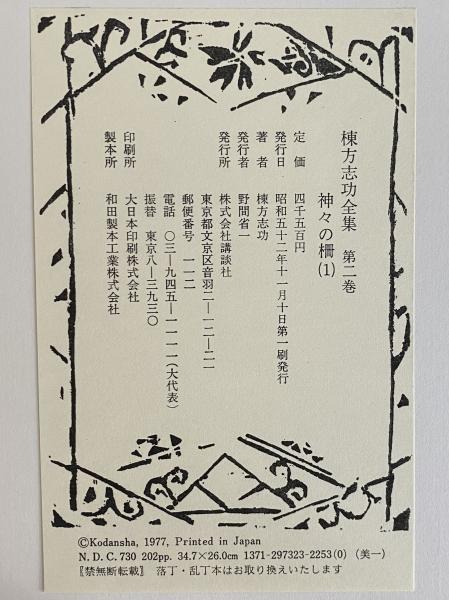 棟方志功全集　第二巻
神々の柵(1)
定　価　四千五百円
発行日　昭和五十二年十一月十日第一刷発行
著　者　棟方志功
発行者　野間省一
発行所　株式会社講談社
東京都文京区音羽二―一二―二一
郵便番号　一一二
電話　〇三―九四五―一一一一(大代表)
振替　東京八―三九三〇
印刷所　大日本印刷株式会社
製本所　和田製本工業株式会社
©Kodansha, 1977, Printed in Japan
N. D. C. 730 202pp. 34.7×26.0cm 1371-297323-2253(0) (美一)
〖禁無断転載〗 落丁・乱丁本はお取り換えいたします